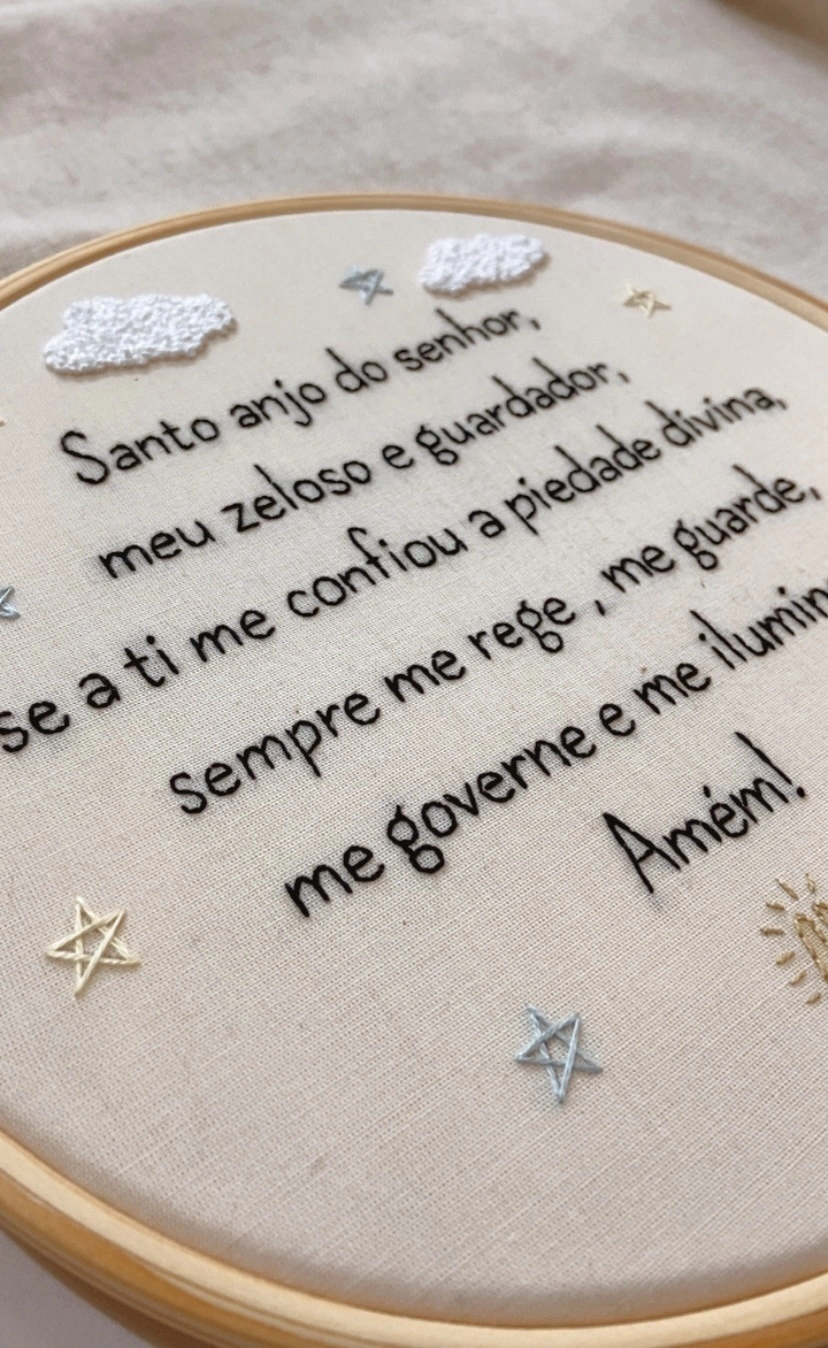 Santo anjo do senhor,
meu zeloso e guardador,
se a ti me confiou a piedade divina,
sempre me rege , me guarde,
me governe e me ilumin
Amém!